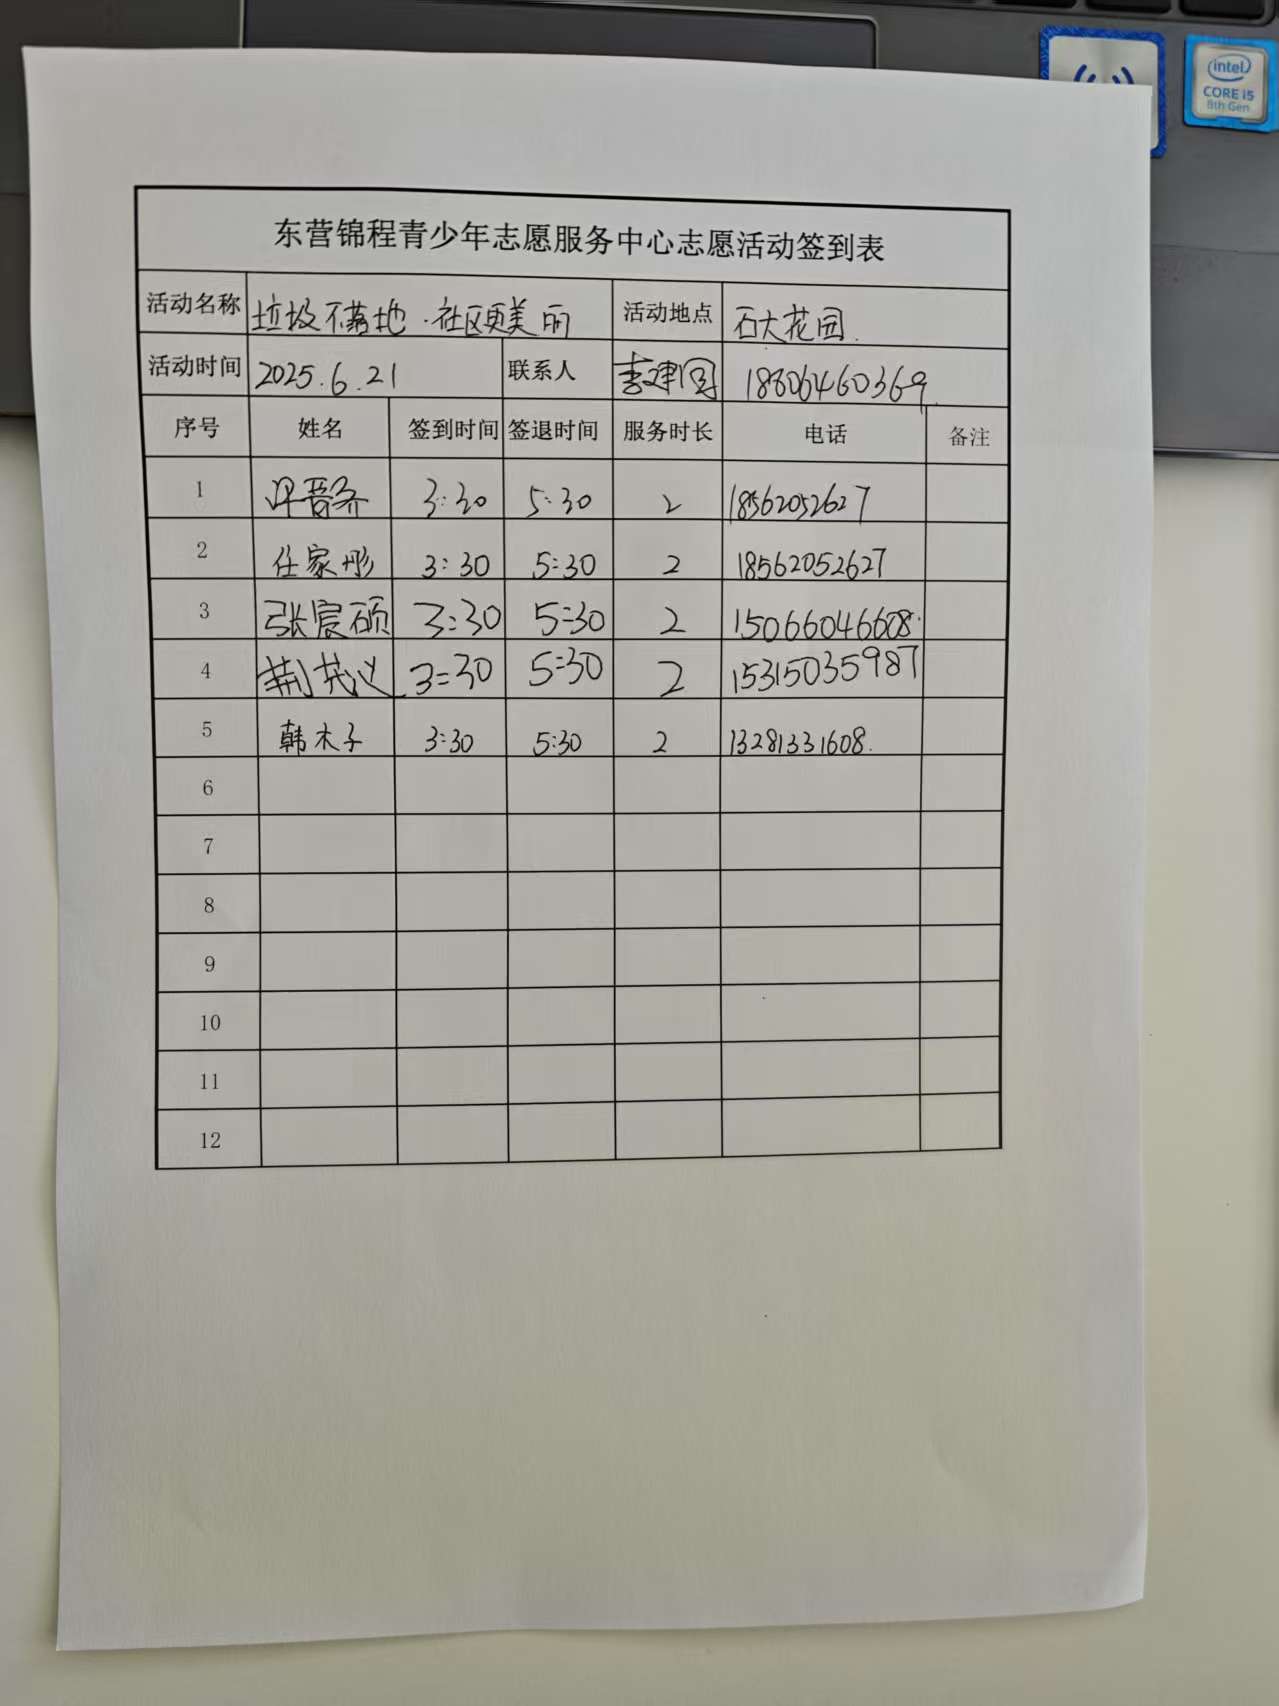 intel
CORE i5
8th Gen
东营锦程青少年志愿服务中心志愿活动签到表
活动名称 垃圾不落地·社区更美丽 活动地点 石大花园.
活动时间 2025.6.21 联系人 李建国 18606460369
序号 姓名 签到时间 签退时间 服务时长 电话 备注
1 3:30 5:30 2 18562052627
2 任家彤 3:30 5:30 2 18562052627
3 张宸硕 3:30 5:30 2 15066046608.
4 荆茂义 3:30 5:30 2 15315035987
5 韩木子 3:30 5:30 2 13281331608.
6
7
8
9
10
11
12